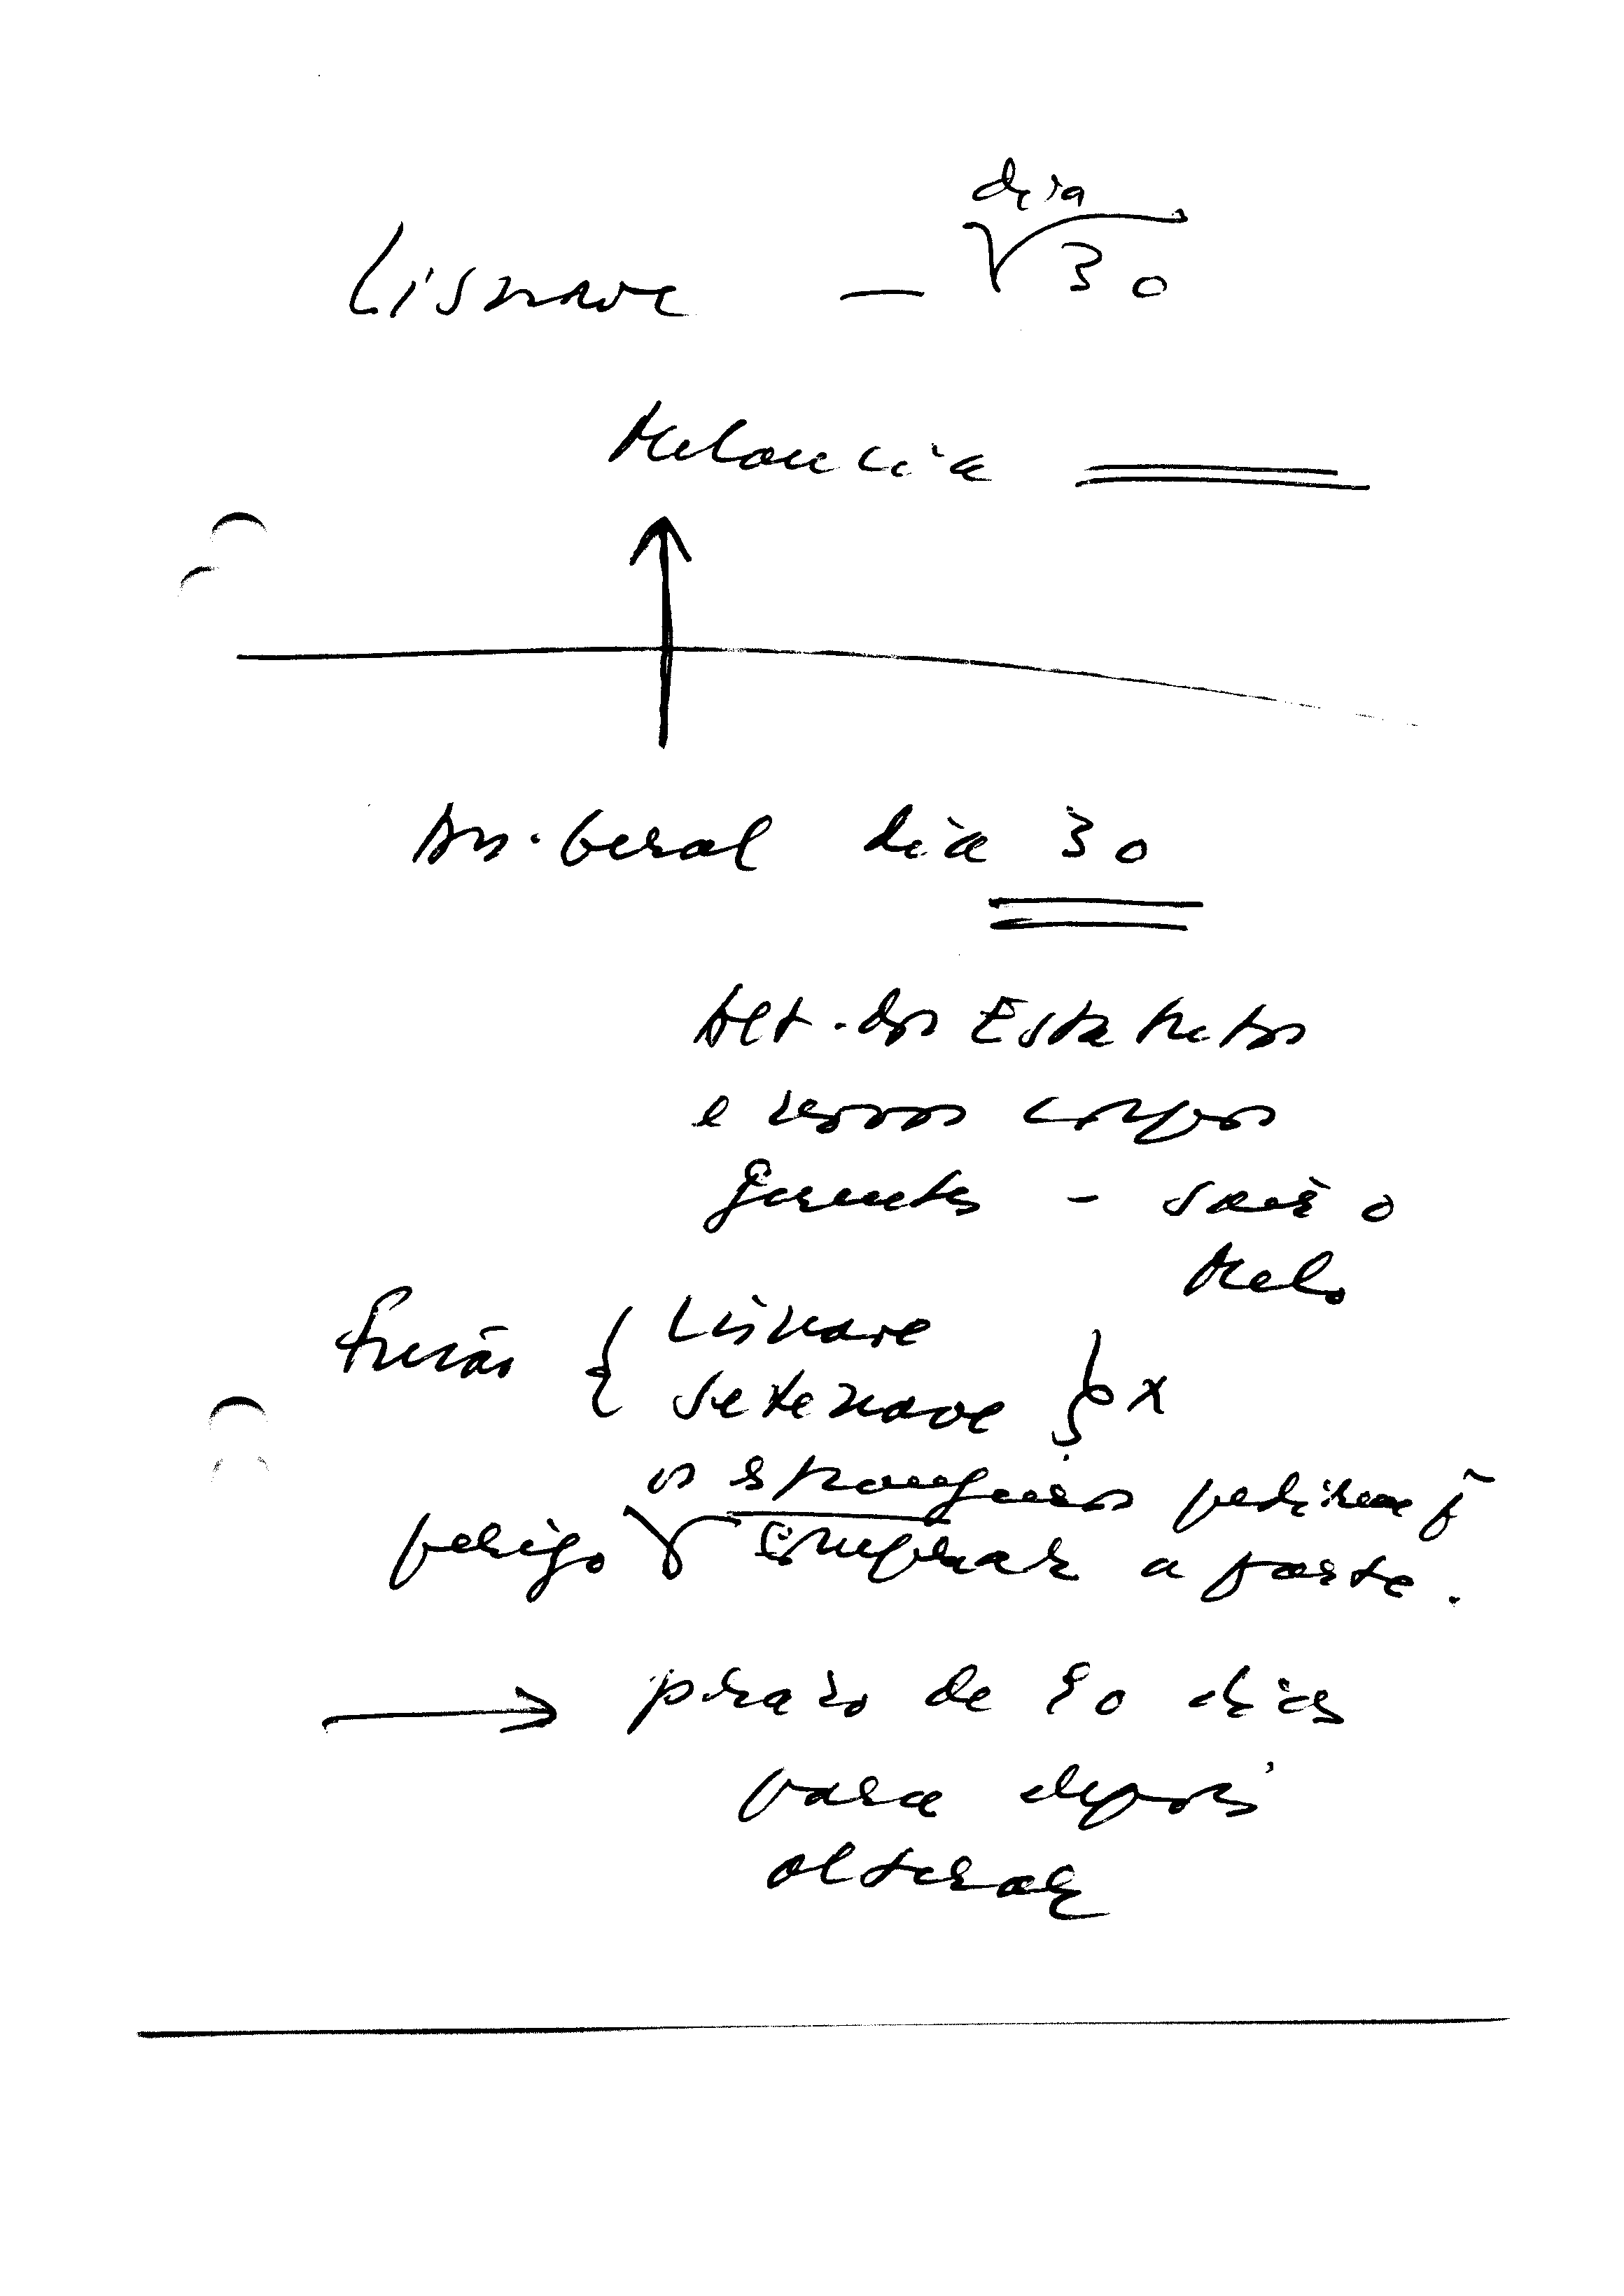 dia
Lisnave — 30
Melancia
As. Geral dia 30
Alt. dos Estatutos
e novos corpos
gerentes - sair o
Melo
Fusão { Lisnave
Setenave } x
os estrangeiros pedirem p
perigo comprar a parte.
prazo de 90 dias
para depois
alterar